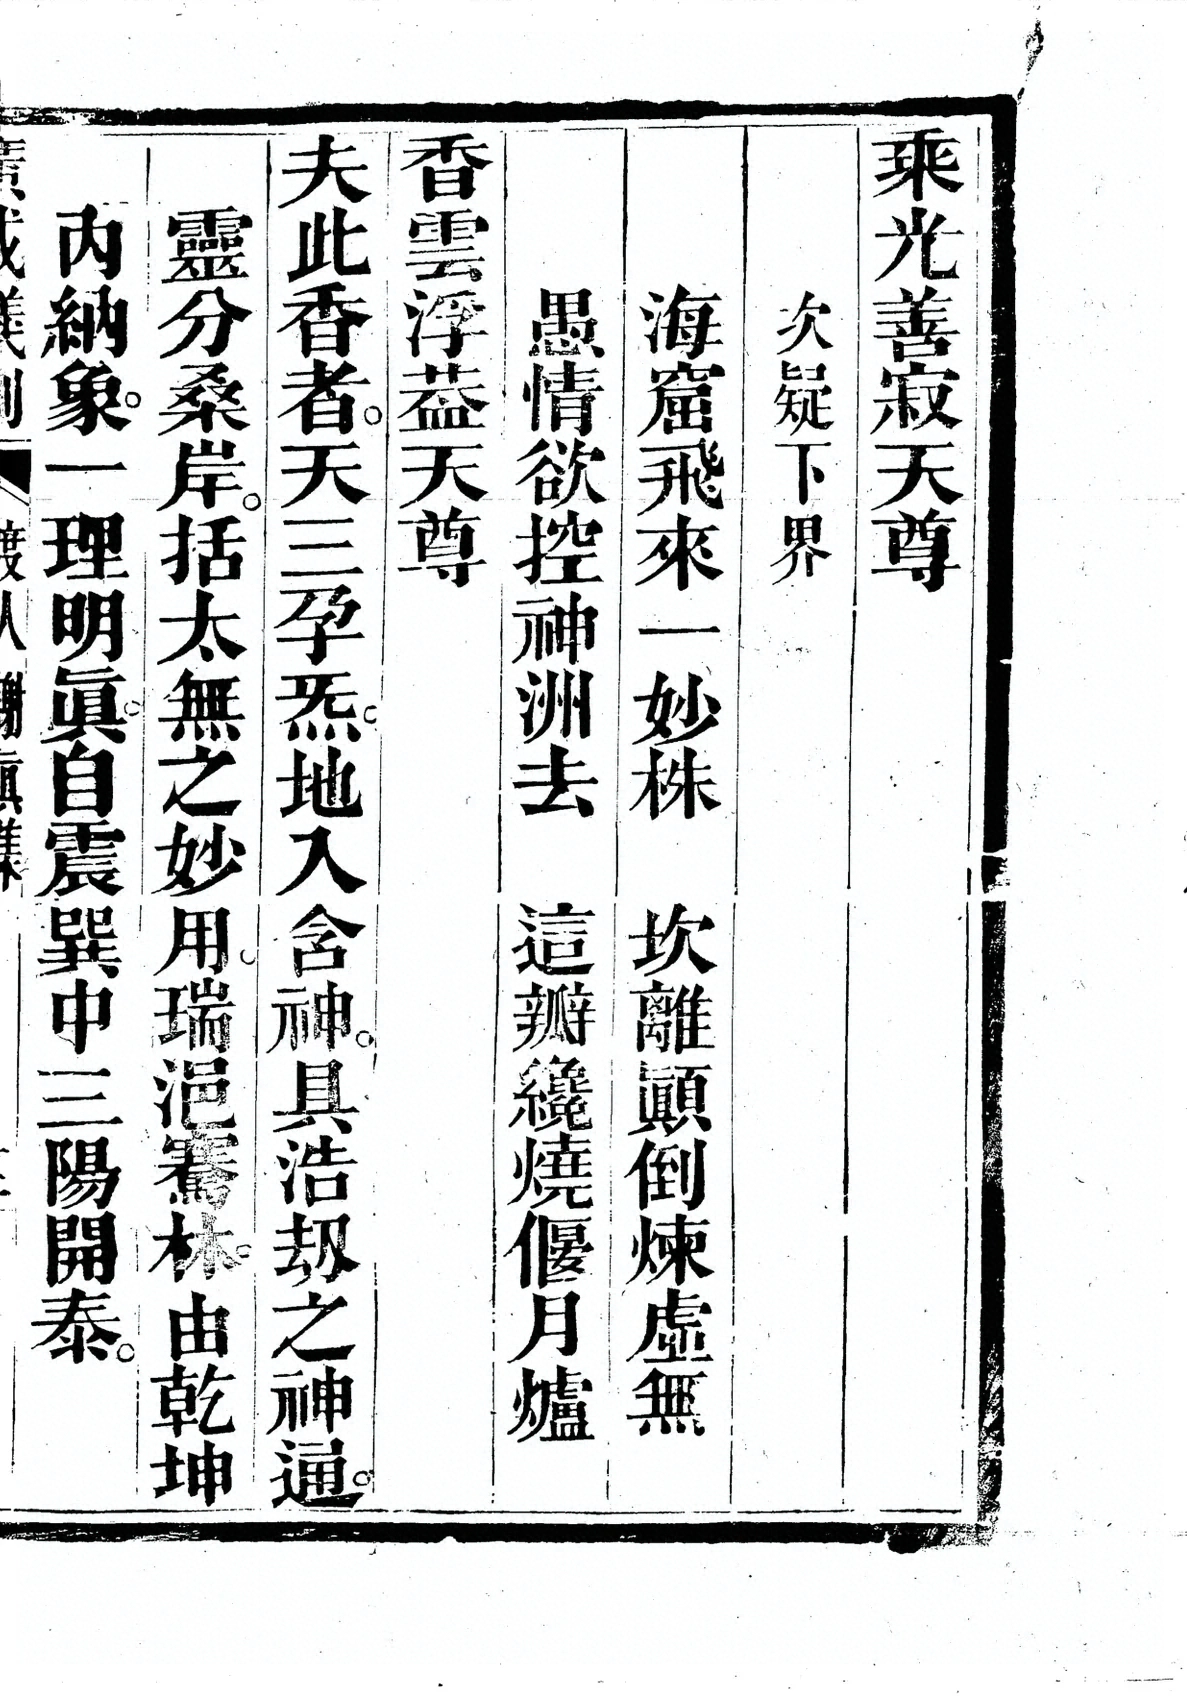 乘光善寂天尊
次疑下界
海窟飛來一妙株　坎離顚倒煉虛無
愚情欲控神洲去　這瓣纔燒偃月爐
香雲浮葢天尊
夫此香者。天三孕炁。地入含神。具浩刼之神通。
靈分桑岸。括太無之妙用。瑞浥騫林。由乾坤
內納象。一理明眞。自震巽中三陽開泰。
廣成儀制 度人謝眞集